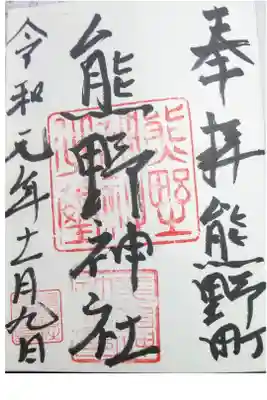 奉拝熊野町
熊野神社
令和元年十一月九日